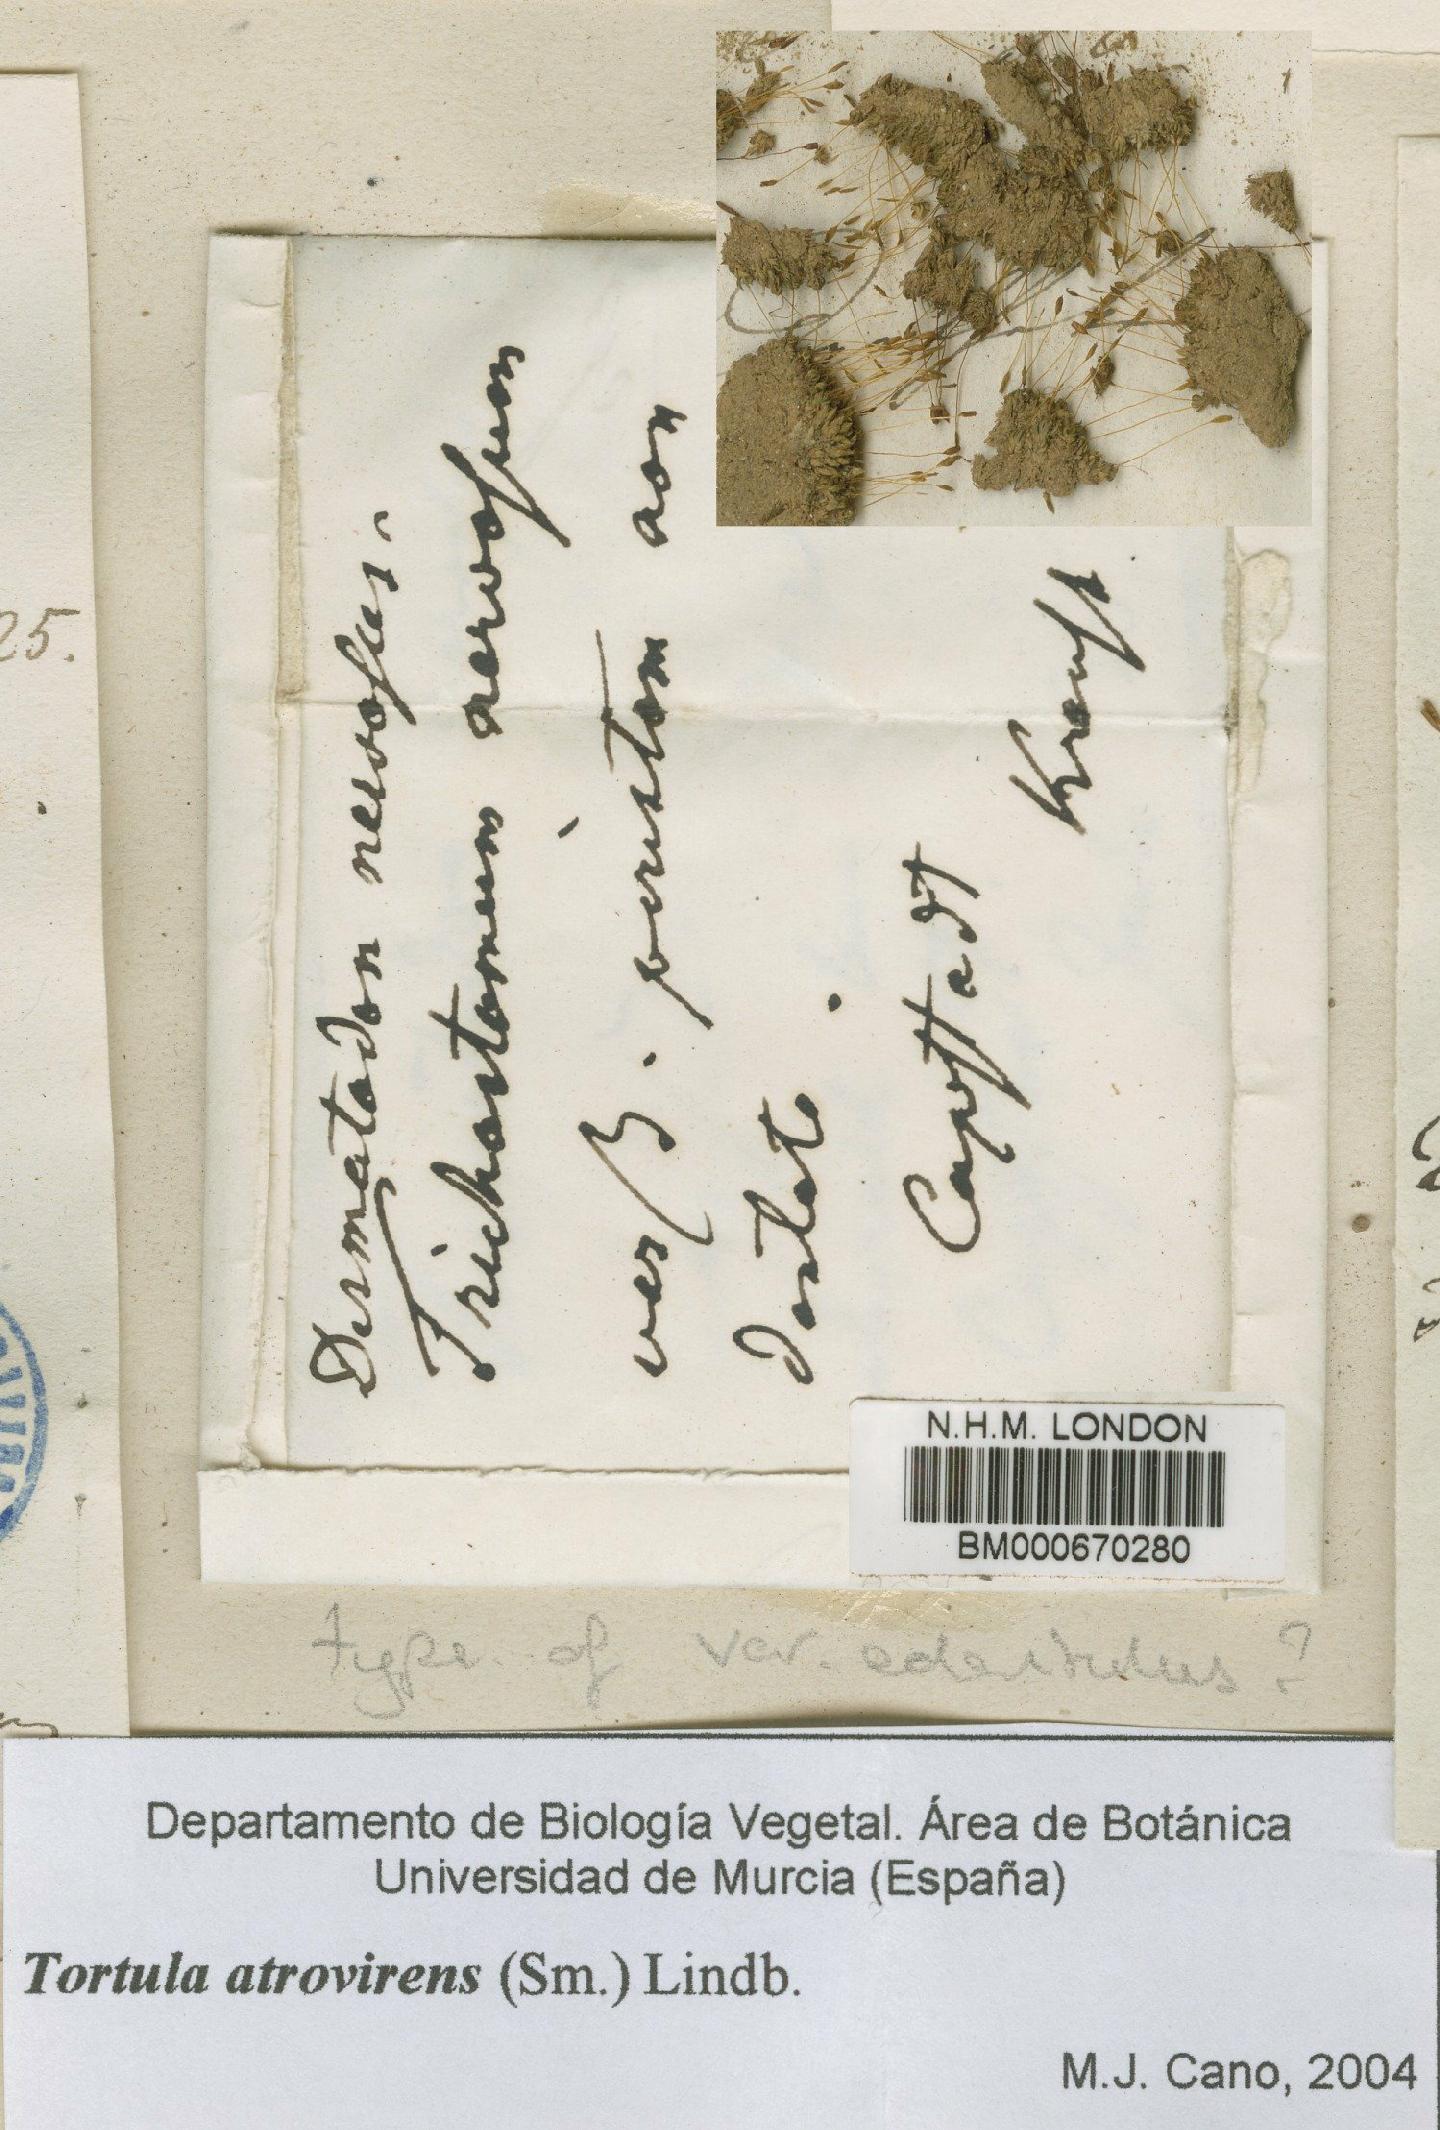 25.
Dermatodon nervosus.
Trichostomum nervosum
var β. peristom non
dentato.
Capstadt
Krauss
N.H.M. LONDON
BM000670280
type of var. edentulus?
Departamento de Biología Vegetal. Área de Botánica
Universidad de Murcia (España)
Tortula atrovirens (Sm.) Lindb.
M.J. Cano, 2004